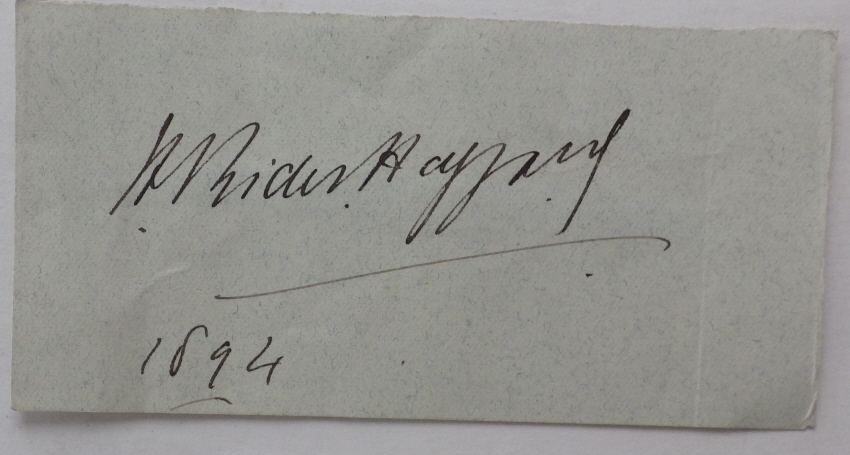 H. Rider Haggard
1894